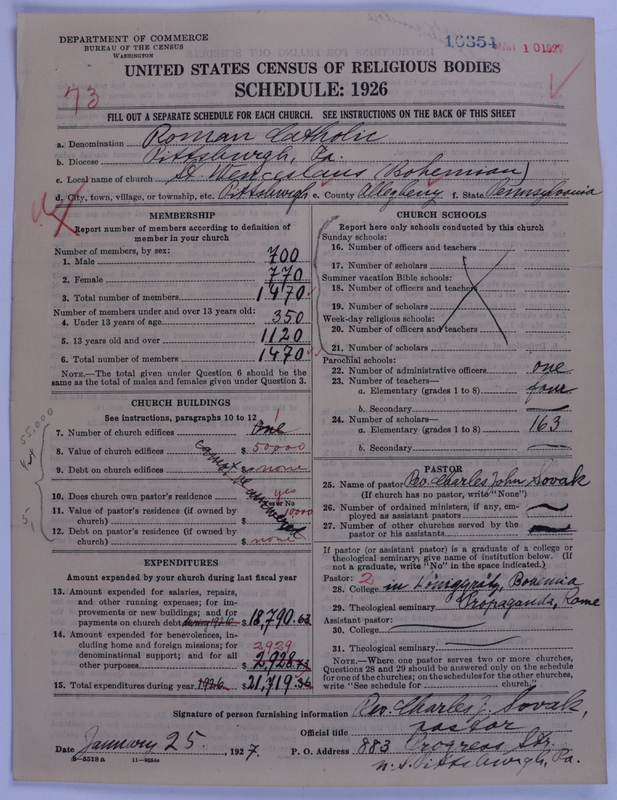 DEPARTMENT OF COMMERCE
BUREAU OF THE CENSUS
WASHINGTON
16354
MAR 10 1927
UNITED STATES CENSUS OF RELIGIOUS BODIES
SCHEDULE: 1926
73
FILL OUT A SEPARATE SCHEDULE FOR EACH CHURCH. SEE INSTRUCTIONS ON THE BACK OF THIS SHEET
a. Denomination Roman Catholic
b. Diocese Pittsburgh, Pa.
c. Local name of church St Wenceslaus (Bohemian)
d. City, town, village, or township, etc. Pittsburgh e. County Allegheny f. State Pennsylvania
MEMBERSHIP
Report number of members according to definition of
member in your church
Number of members, by sex:
1. Male 700
2. Female 770
3. Total number of members 1470
Number of members under and over 13 years old:
4. Under 13 years of age 350
5. 13 years old and over 1120
6. Total number of members 1470
NOTE.—The total given under Question 6 should be
the same as the total of males and females given under Question 3.
CHURCH BUILDINGS
See instructions, paragraphs 10 to 12
7. Number of church edifices One 1
8. Value of church edifices $ 50000
9. Debt on church edifices $ none
cannot be answered
55,000
10. Does church own pastor's residence yes
Yes or No
11. Value of pastor's residence (if owned by
church) $
12. Debt on pastor's residence (if owned by
church) $ none
EXPENDITURES
Amount expended by your church during last fiscal year
13. Amount expended for salaries, repairs,
and other running expenses; for im-
provements or new buildings; and for
payments on church debt during 1926 $ 18,790.63
14. Amount expended for benevolences, in-
cluding home and foreign missions; for
denominational support; and for all
other purposes 2929
2,928.73
15. Total expenditures during year 1926 $ 21,719.36
CHURCH SCHOOLS
Report here only schools conducted by this church
Sunday schools:
16. Number of officers and teachers
17. Number of scholars
Summer vacation Bible schools:
18. Number of officers and teachers
19. Number of scholars
Week-day religious schools:
20. Number of officers and teachers
21. Number of scholars
Parochial schools:
22. Number of administrative officers one
23. Number of teachers—
a. Elementary (grades 1 to 8) four
b. Secondary
24. Number of scholars—
a. Elementary (grades 1 to 8) 163
b. Secondary
PASTOR
25. Name of pastor Rev. Charles John Novak
(If church has no pastor, write "None")
26. Number of ordained ministers, if any, em-
ployed as assistant pastors
27. Number of other churches served by the
pastor or his assistants
If pastor (or assistant pastor) is a graduate of a college or
theological seminary, give name of institution below. (If
not a graduate, write "No" in the space indicated.)
Pastor: 2
28. College in Königgrätz, Bohemia
29. Theological seminary Propaganda, Rome
Assistant pastor:
30. College
31. Theological seminary
NOTE.—Where one pastor serves two or more churches,
Questions 28 and 29 should be answered only on the schedule
for one of the churches; on the schedules for the other churches,
write "See schedule for church."
Signature of person furnishing information Rev. Charles J. Novak,
Official title pastor
Date January 25, 1927. P. O. Address 883 Progress Str.
N. S. Pittsburgh, Pa.
8—5518 a